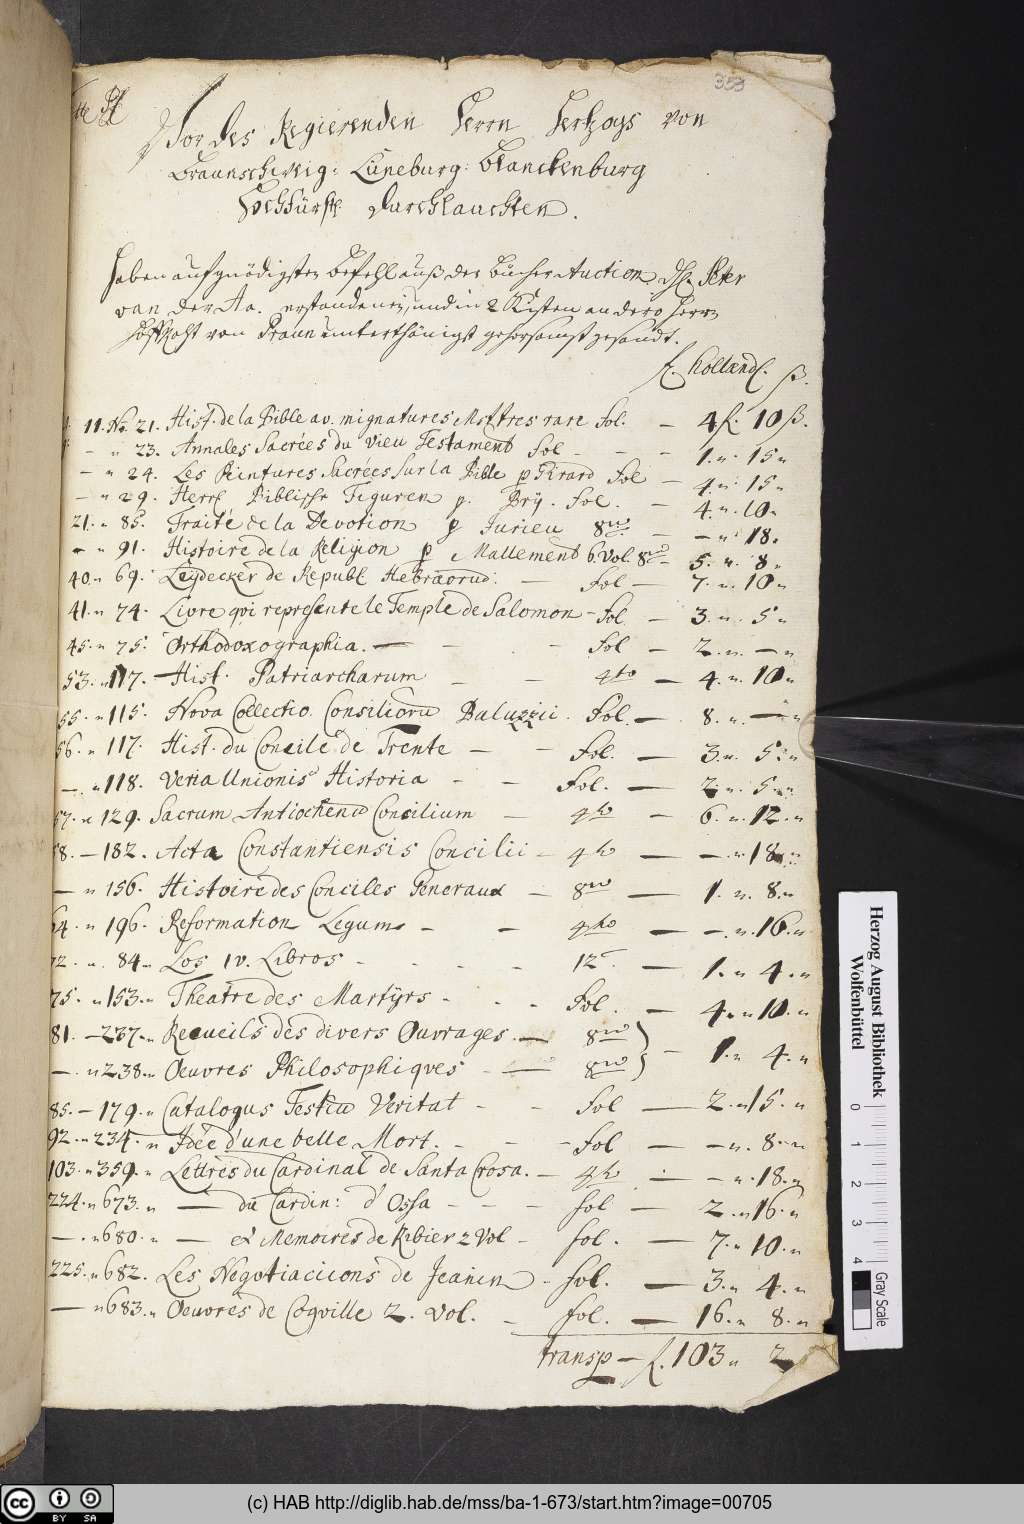 353
Vor des Regierenden Herrn Hertzogs von
Braunschweig: Lüneburg: Blanckenburg
Hochfürstl. Durchlauchten.
Haben auf gnädigsten Befehl auß der Bücher Auction Peter
van der Aa. erstanden, und in 2 Kisten an dero Herrn
Hoffraht von Praun unterthänigst gehorsamst gesandt.
f. holland. ß.
11. No. 21. Hist. de la Bible av. mignatures Mettres rare fol. — 4 f. 10 ß.
— " 23. Annales Sacrées du vieu Testament fol — 1. " 15 "
— " 24. Les Peintures Sacrées sur la Bible p Girard fol — 4. " 15 "
— " 29. Herrl Biblische Figuren p. Brÿ. fol. — 4. " 10 "
21. " 85. Traité de la Devotion p Jurieu 8vo — — " 18.
— " 91. Histoire de la Religion p Mallement 6. Vol. 8vo — 5. " 8 "
40. " 69. Leydecker de Republ Hebraorud. — fol — 7. " 10 "
41. " 74. Livre qvi represente le Temple de Salomon — fol. — 3. " 5 "
45. " 75. Orthodoxographia. — fol — 2. " — "
53. " 117. Hist. Patriarcharum — 4to — 4. " 10 "
55. " 115. Nova Collectio Consilioru Baluzzii. fol. — 8. " — "
56. " 117. Hist. du Concile de Trente — fol. — 3. " 5 "
— . " 118. Veria Unionis Historia — fol. — 2. " 5 "
57. " 129. Sacrum Antiochenu Concilium — 4to — 6. " 12. "
58. — 182. Acta Constantiensis Concilii — 4to — — . " 18. "
— " 156. Histoire des Conciles Generaux — 8vo — 1. " 8. "
64. " 196. Reformation Legum. — 4to — — . " 16. "
72. " 84. " Los IV. Libros — 12 — 1. " 4. "
75. " 153. " Theatre des Martÿrs — fol. — 4. " 10. "
81. — 237. " Recueils des divers Ouvrages. — 8vo
— . " 238. " Oeuvres Philosophiqves — 8vo } — 1. " 4. "
85. — 179. " Catalogus Testiu Veritat — fol — 2. " 15. "
92. " 234. " Idée d'une belle Mort. — fol — — " 8. "
103. " 359. " Lettres du Cardinal de Santa Crosa. — 4to — — " 18. "
224. " 673. " — du Cardin: d'Ossa — fol — 2. " 16. "
— . " 680. " — et Memoires de Ribier 2 Vol — fol. — 7. " 10. "
225. " 682. Les Negotiaciions de Jeanin — fol. — 3. " 4. "
— " 683. " Oeuvres de Coqville 2. Vol. — fol. — 16. " 8. "
transp — f. 103 " 2
Herzog August Bibliothek
Wolfenbüttel
0 1 2 3 4
Gray Scale
cc BY SA
(c) HAB http://diglib.hab.de/mss/ba-1-673/start.htm?image=00705